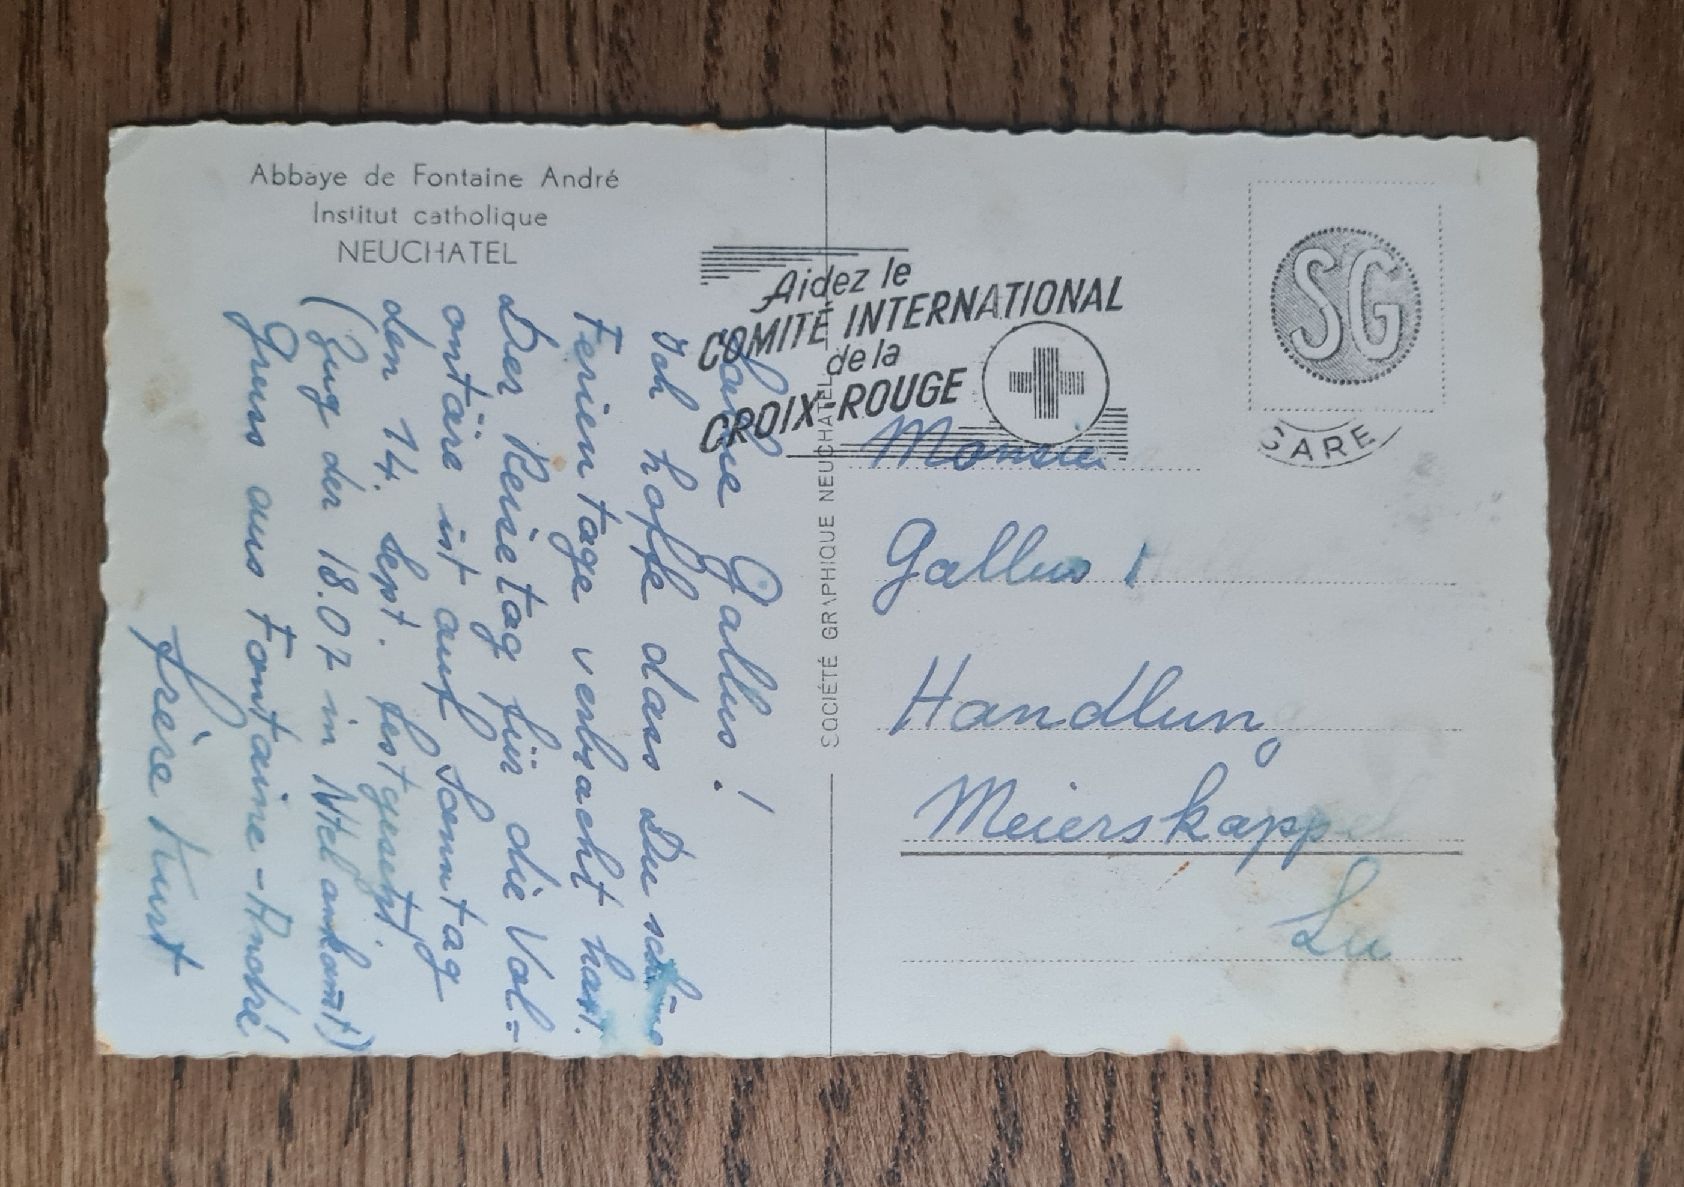 Abbaye de Fontaine André
Institut catholique
NEUCHATEL
Gallus !
Ich hoffe dass Du schöne
Ferientage verbracht hast.
Der Reisetag für die Vol-
ontäre ist auf Sonntag
den 14. Sept. festgesetzt.
(Zug der 18.07 in Ntel ankommt)
Gruss aus Fontaine-André
frère Kurt
SOCIÉTÉ GRAPHIQUE NEUCHATEL
Aidez le
COMITÉ INTERNATIONAL
de la
CROIX-ROUGE
SG
GARE
Monsieu
Gallus
Handlung
Meierskappel
Lu